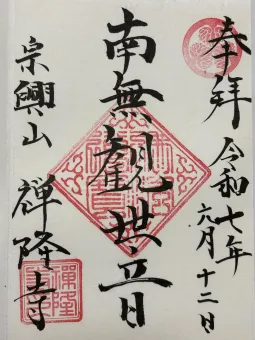 奉拝
令和七年
六月十二日
南無観世音
宗興山
禅隆寺
禅隆